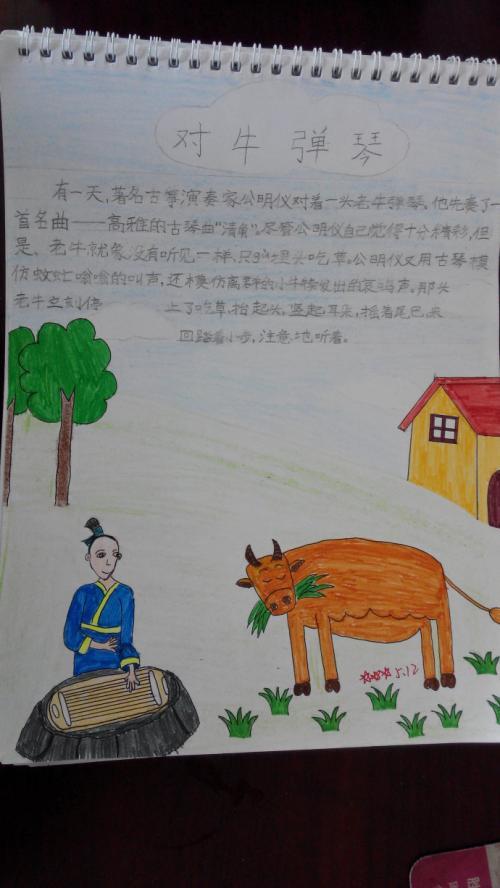 对牛弹琴
有一天,著名古筝演奏家公明仪对着一头老牛弹琴。他先奏了一
首名曲——高雅的古琴曲“清角”。尽管公明仪自己觉得十分精彩,但
是、老牛就象没有听见一样,只的埋头吃草。公明仪又用古琴模
仿蚊虻嗡嗡的叫声,还模仿离群的小牛犊发出的哀鸣声。那头
老牛立刻停 上了吃草,抬起头,竖起耳朵,摇着尾巴,来
回踏着小步,注意地听着。
5.12